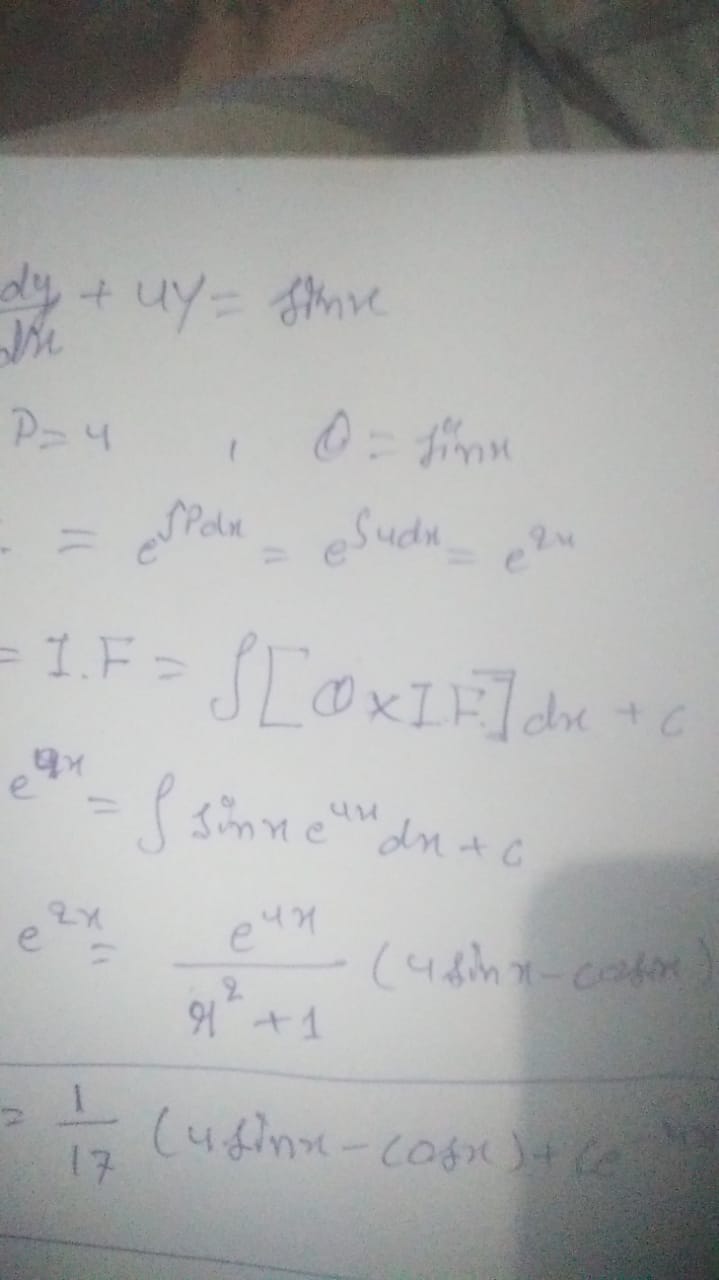 dy/dx + 4y = sinx
P=4 , Q = sinx
. = e^∫Pdx = e^∫4dx = e^2x
= I.F = ∫[Q×I.F]dx + c
e^4x = ∫ sinx e^4x dx + c
e^2x = e^4x/4^2+1 (4sinx-cosx)
= 1/17 (4sinx-cosx)+ce